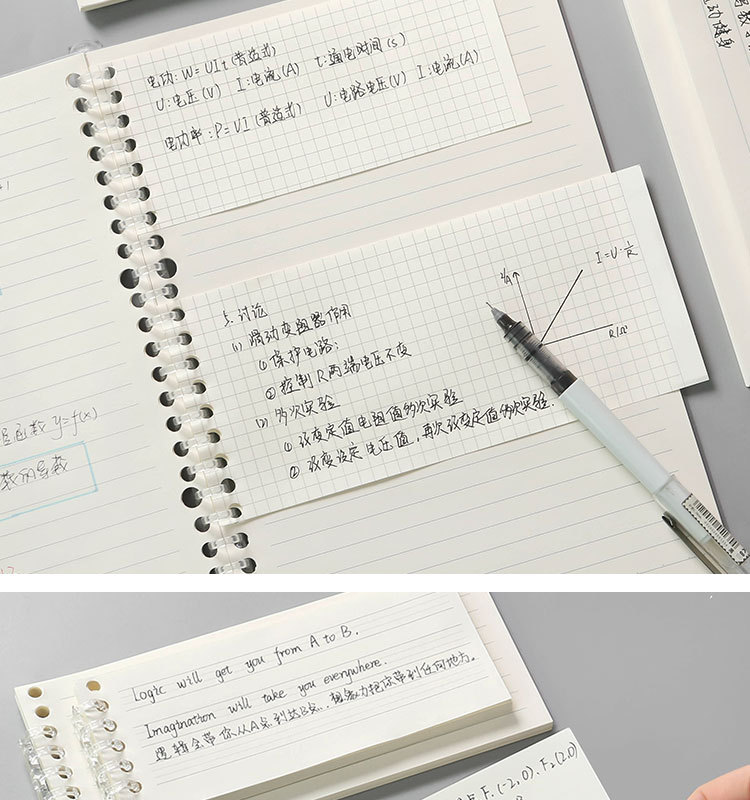 电功: W=UIt (普适式)
U:电压(V) I:电流(A) t:通电时间(s)
电功率: P=UI (普适式) U:电路电压(V) I:电流(A)
5.讨论
(1) 滑动变阻器作用
①保护电路;
②控制R两端电压不变
(2) 多次实验
①改变定值电阻值多次实验
②改变设定电压值,再次改变定值多次实验.
I/A
I=U·1/R
R/Ω
函数 y=f(x)
数的导数
Logic will get you from A to B.
Imagination will take you everywhere.
逻辑会带你从A点到达B点,想象力把你带到任何地方。
F₁(-2,0), F₂(2,0)